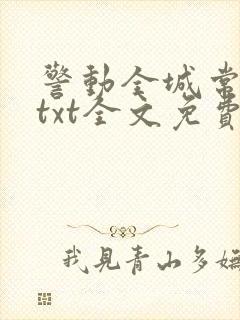 警動全城常
txt全文免費
我見青山多嫵